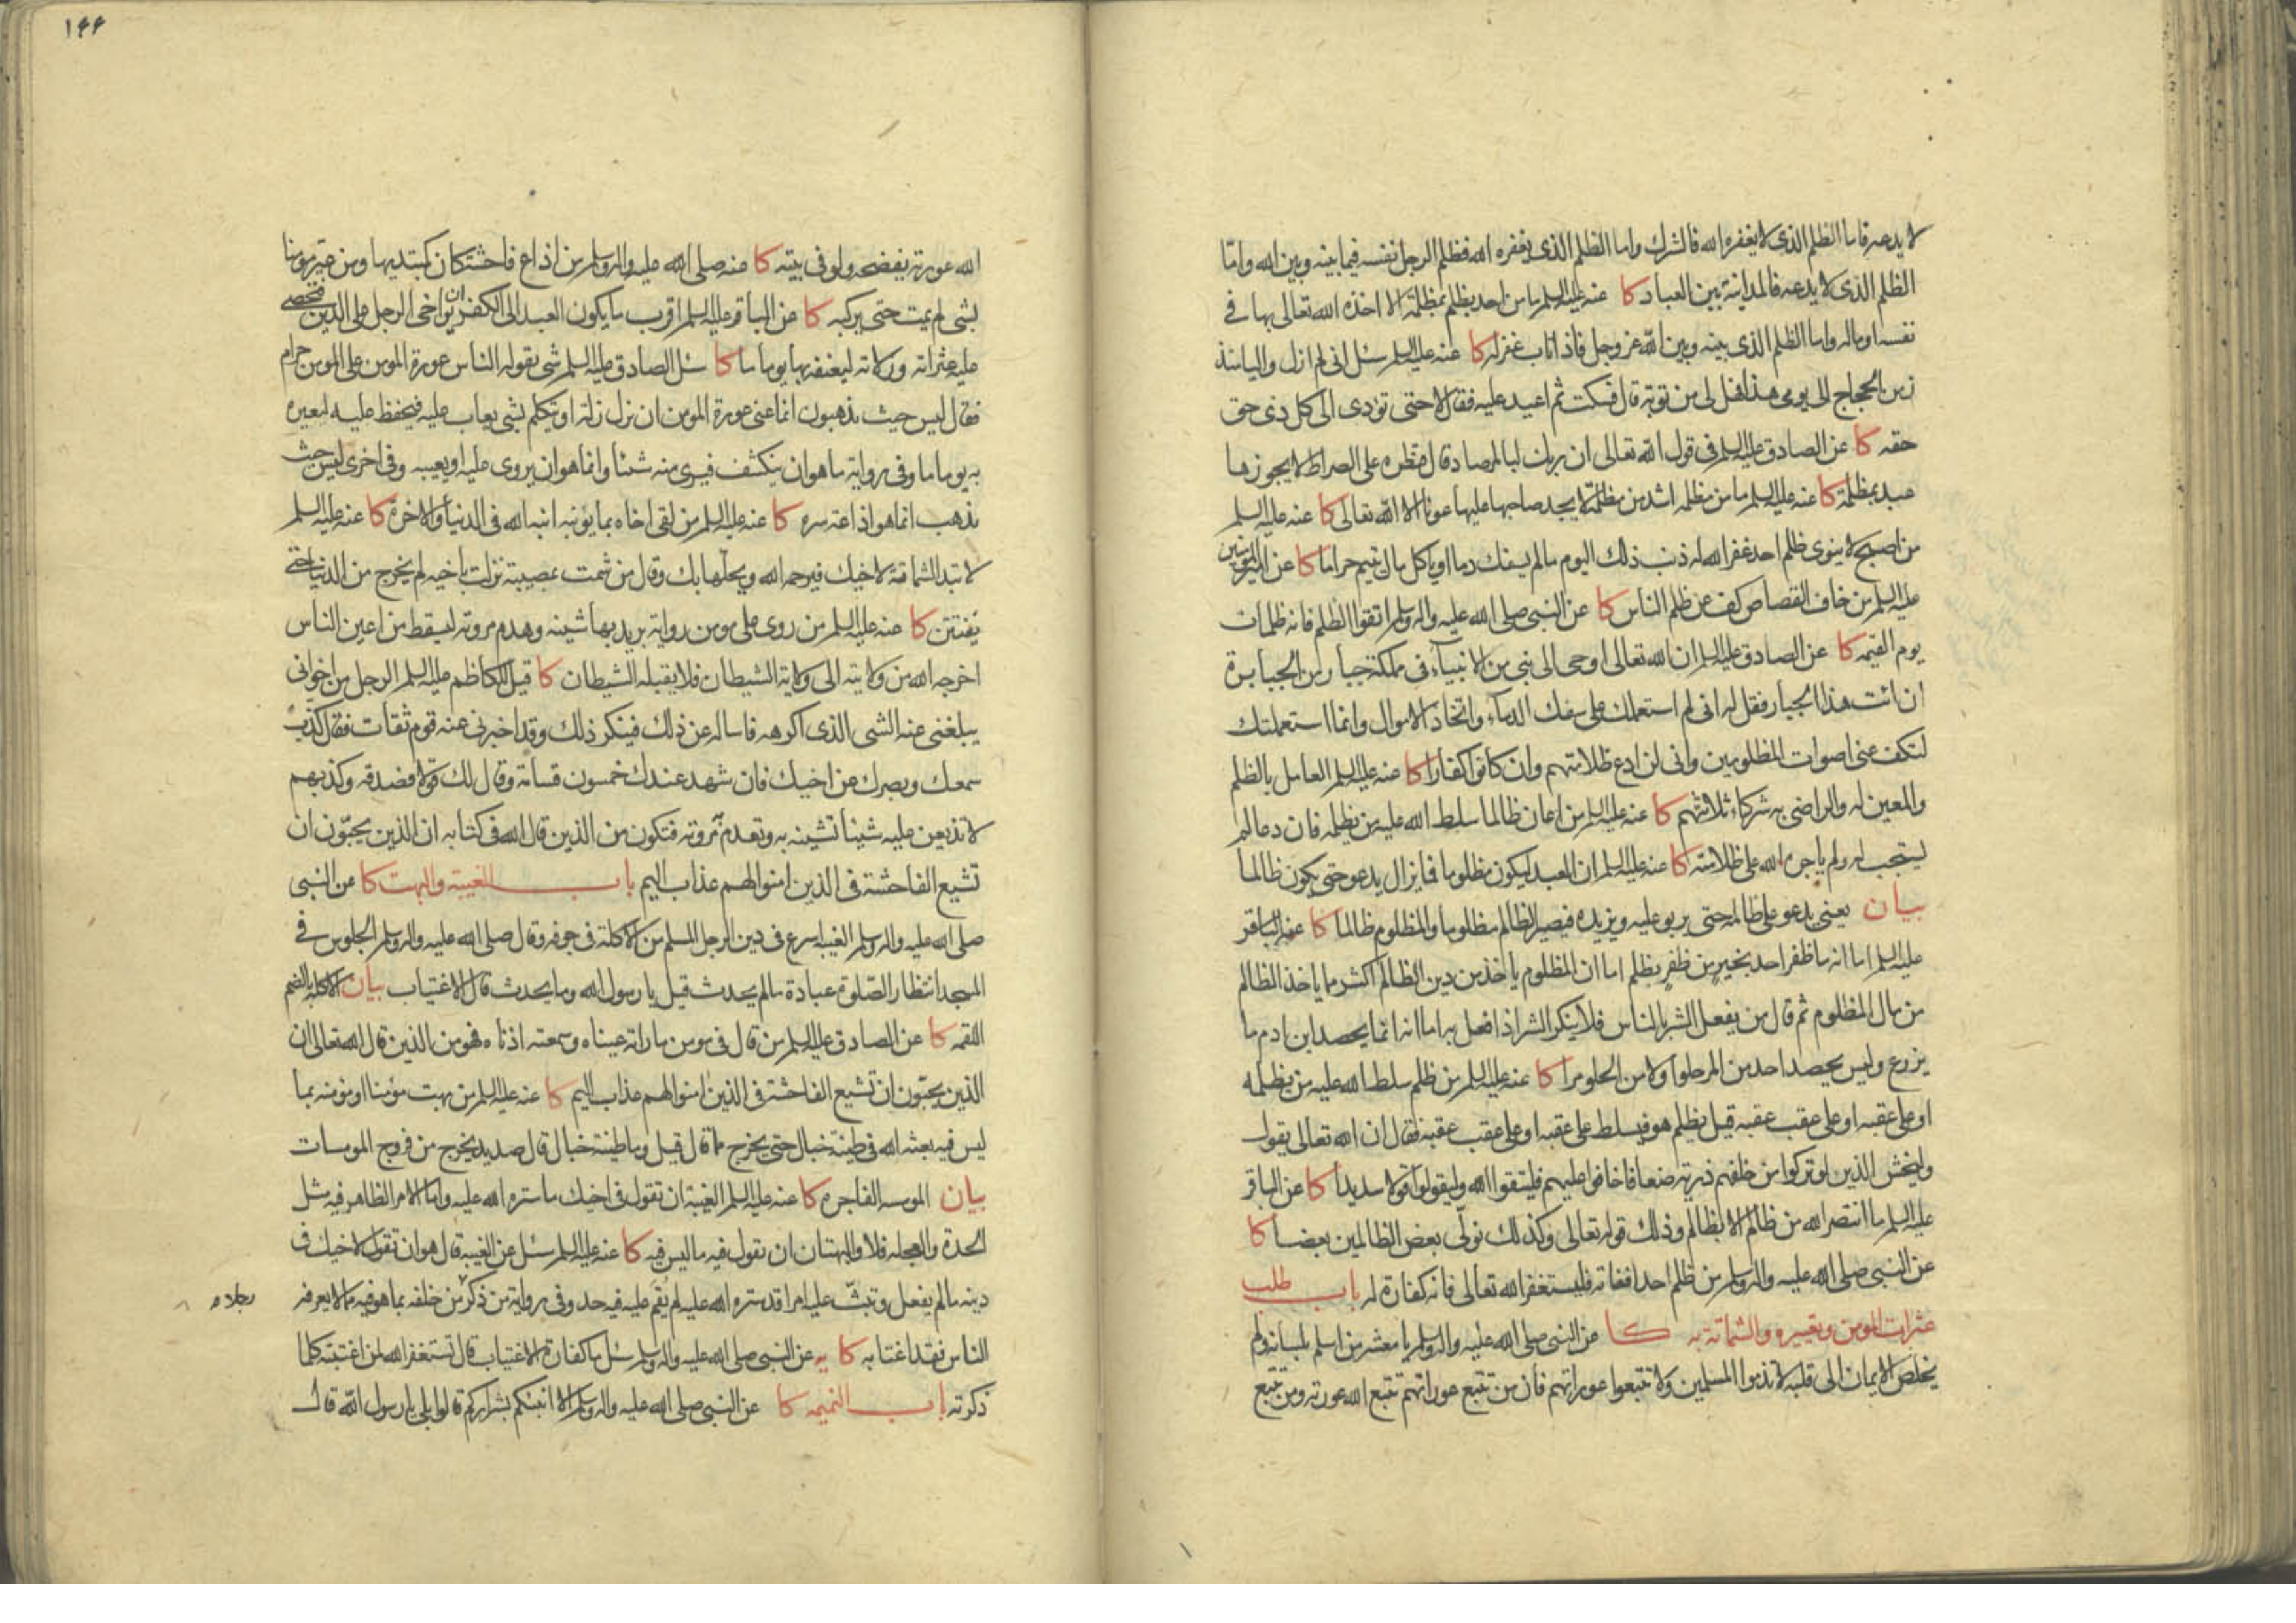 لا يدعه فاما الظلم الذى لا يغفره الله فالشرك واما الظلم الذى يغفره الله فظلم الرجل نفسه فيما بينه وبين الله واما
الظلم الذى لا يدعه فالمداينة بين العباد كا عنه عليه السلم ما من احد يظلم بمظلمة الا اخذه الله تعالى بها فى
نفسه او ماله واما الظلم الذى بينه وبين الله عز وجل فاذا تاب غفر له كا عنه عليه السلم سئل انى لم ازل واليا منذ
زمن الحجاج الى يومى هذا فهل لى من توبة قال فسكت ثم اعيد عليه فقال لا حتى تؤدى الى كل ذى حق
حقه كا عن الصادق عليه السلم فى قول الله تعالى ان ربك لبالمرصاد قال قنطرة على الصراط لا يجوزها
عبد بمظلمة كا عنه عليه السلم ما من مظلمة اشد من مظلمة لا يجد صاحبها عليها عونا الا الله تعالى كا عنه عليه السلم
من اصبح لا ينوى ظلم احد غفر الله له ذنب ذلك اليوم ما لم يسفك دما او ياكل مال يتيم حراما كا عن امير المؤمنين
عليه السلم من خاف القصاص كف عن ظلم الناس كا عن النبى صلى الله عليه واله وسلم اتقوا الظلم فانه ظلمات
يوم القيمه كا عن الصادق عليه السلم ان الله تعالى اوحى الى نبى من الانبياء فى مملكة جبار من الجبابرة
ان ائت هذا الجبار فقل له انى لم استعملك على سفك الدماء واتخاذ الاموال وانما استعملتك
لتكف عنى اصوات المظلومين وانى لن ادع ظلامتهم وان كانوا كفارا كا عنه عليه السلم العامل بالظلم
والمعين له والراضى به شركاء ثلاثتهم كا عنه عليه السلم من اعان ظالما سلط الله عليه من يظلمه فان دعا لم
يستجب له ولم ياجره الله على ظلامته كا عنه عليه السلم ان العبد ليكون مظلوما فما يزال يدعو حتى يكون ظالما
بيان يعنى يدعو على ظالمه حتى يربو عليه ويزيده فيصير الظالم مظلوما والمظلوم ظالما كا عن الباقر
عليه السلم اما انه ما ظفر احد بخير من ظفر بظلم اما ان المظلوم ياخذ من دين الظالم اكثر مما ياخذ الظالم
من مال المظلوم ثم قال من يفعل الشر بالناس فلا ينكر الشر اذا فعل به اما انه انما يحصد ابن ادم ما
يزرع وليس يحصد احد من المر حلوا ولا من الحلو مرا كا عنه عليه السلم من ظلم سلط الله عليه من يظلمه
او على عقبه او على عقب عقبه قيل يظلم هو فيسلط على عقبه او على عقب عقبه فقال ان الله تعالى يقول
وليخش الذين لو تركوا من خلفهم ذرية ضعافا خافوا عليهم فليتقوا الله وليقولوا قولا سديدا كا عن الباقر
عليه السلم ما انتصر الله من ظالم الا بظالم وذلك قوله تعالى وكذلك نولى بعض الظالمين بعضا كا
عن النبى صلى الله عليه واله وسلم من ظلم احدا ففاته فليستغفر الله تعالى فانه كفارة له باب طلب
عثرات المومن وتعييره والشماتة به كا عن النبى صلى الله عليه واله وسلم يا معشر من اسلم بلسانه ولم
يخلص الايمان الى قلبه لا تذموا المسلمين ولا تتبعوا عوراتهم فان من تتبع عوراتهم تتبع الله عورته ومن تتبع
١٤٤
الله عورته يفضحه ولو فى بيته كا عنه صلى الله عليه واله وسلم من اذاع فاحشة كان كمبتديها ومن عير مومنا
بشى لم يمت حتى يركبه كا عن الباقر عليه السلم اقرب ما يكون العبد الى الكفر ان يواخى الرجل على الدين فيحصى
عليه عثراته وزلاته ليعنفه بها يوما ما كا سئل الصادق عليه السلم شى يقوله الناس عورة المومن على المومن حرام
فقال ليس حيث يذهبون انما عنى عورة المومن ان يزل زلة او يتكلم بشى يعاب عليه فيحفظ عليه ليعيره
به يوما ما وفى رواية ما هو ان ينكشف فيرى منه شيئا وانما هو ان يروى عليه او يعيبه وفى اخرى ليس حيث
يذهب انما هو اذاعة سره كا عنه عليه السلم من لقى اخاه بما يؤنبه انبه الله فى الدنيا والاخرة كا عنه عليه السلم
لا تبد الشماتة لاخيك فيرحمه الله ويحلها بك وقال من شمت بمصيبة نزلت باخيه لم يخرج من الدنيا حتى
يفتتن كا عنه عليه السلم من روى على مومن رواية يريد بها شينه وهدم مروته ليسقط من اعين الناس
اخرجه الله من ولايته الى ولاية الشيطان فلا يقبله الشيطان كا قيل للكاظم عليه السلم الرجل من اخوانى
يبلغنى عنه الشى الذى اكرهه فاساله عن ذلك فينكر ذلك وقد اخبرنى عنه قوم ثقات فقال كذب
سمعك وبصرك عن اخيك فان شهد عندك خمسون قسامة وقال لك قولا فصدقه وكذبهم
لا تذيعن عليه شيئا تشينه به وتهدم مروته فتكون من الذين قال الله فى كتابه ان الذين يحبون ان
تشيع الفاحشة فى الذين امنوا لهم عذاب اليم باب الغيبة والبهت كا عن النبى
صلى الله عليه واله وسلم الغيبة اسرع فى دين الرجل المسلم من الاكلة فى جوفه وقال صلى الله عليه واله وسلم الجلوس فى
المسجد انتظار الصلوة عبادة ما لم يحدث قيل يا رسول الله وما يحدث قال الاغتياب بيان الاكلة بالضم
اللقمه كا عن الصادق عليه السلم من قال فى مومن ما راته عيناه وسمعته اذناه فهو من الذين قال الله تعالى ان
الذين يحبون ان تشيع الفاحشة فى الذين امنوا لهم عذاب اليم كا عنه عليه السلم من بهت مؤمنا او مؤمنه بما
ليس فيه بعثه الله فى طينة خبال حتى يخرج مما قال قيل وما طينة خبال قال صديد يخرج من فروج المومسات
بيان المومسه الفاجره كا عنه عليه السلم الغيبة ان تقول فى اخيك ما ستره الله عليه واما الامر الظاهر فيه مثل
الحدة والعجله فلا والبهتان ان يقول فيه ما ليس فيه كا عنه عليه السلم سئل عن الغيبة قال هو ان تقول لاخيك فى
دينه ما لم يفعل وتبث عليه امرا قد ستره الله عليه لم يقم عليه فيه حد وفى رواية من ذكر من خلفه بما هو فيه مما لا يعرفه
الناس فقد اغتابه كا يه عن النبى صلى الله عليه واله وسلم سئل ما كفارة الاغتياب قال تستغفر الله لمن اغتبته كلما
ذكرته باب النميمه كا عن النبى صلى الله عليه واله وسلم الا انبئكم بشراركم قالوا بلى يا رسول الله قال